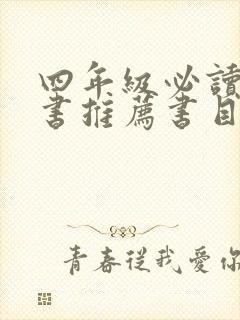 四年級必讀
書推薦書目
青春從我愛你